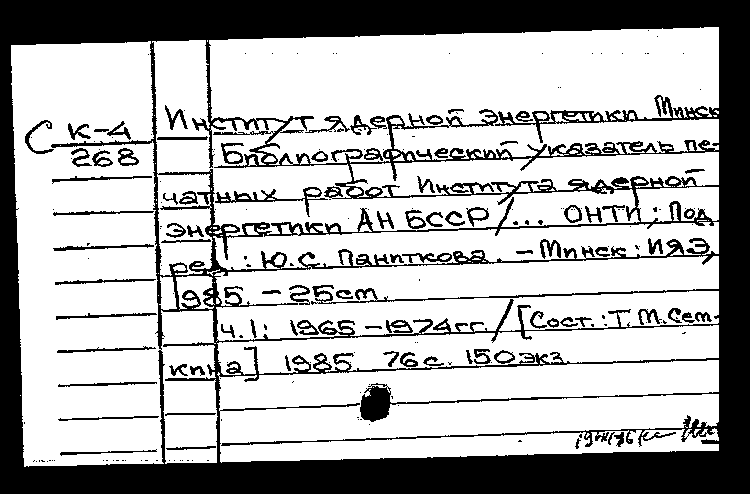 С К-4
268
Институт ядерной энергетики. Минск
Библиографический указатель пе-
чатных работ Института ядерной
энергетики АН БССР /... ОНТИ; Под
ред.: Ю.С. Паниткова. - Минск: ИЯЭ,
1985. - 25cm.
ч.1: 1965-1974гг. / [Сост.: Т.М.Сет-
кина] 1985. 76 с. 150экз.